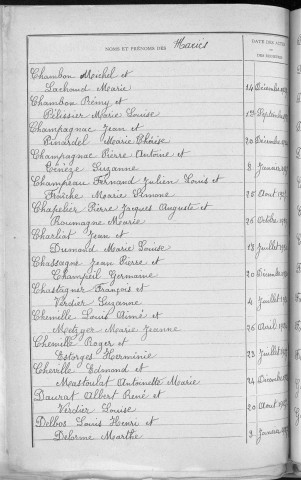 NOMS ET PRÉNOMS DES Mariés
DATE DES ACTES
Chambon Michel et
Lachaud Marie 24 Décembre
Chambon Rémy et
Pélissier Marie Louise Septembre
Champagnac Jean et
Pinardel Marie Thérèse 20 Décembre
Champagnac Pierre Antoine et
Cénèze Suzanne 8 Janvier
Champeau Fernand Julien Louis et
Froiche Marie Simone 20 Août
Chapelier Pierre Jacques Auguste et
Roumagne Marie 26 Octobre
Charliat Jean et
Dumond Marie Louise Juillet
Chassagos Jean Pierre et
Champeil Germaine 20 Décembre
Chastagner François et
Verdier Suzanne 4 Juillet
Chemille Louis Aimé et
Metzger Marie Jeanne 26 Avril
Chemille Roger et
Estorges Herminie 23 Juillet
Cherille Edmond et
Mastoulat Antoinette Marie 24 Décembre
Daurat Albert René et
Verdier Louise 20 Août
Delbos Louis Henri et
Delorme Marthe 3 Janvier